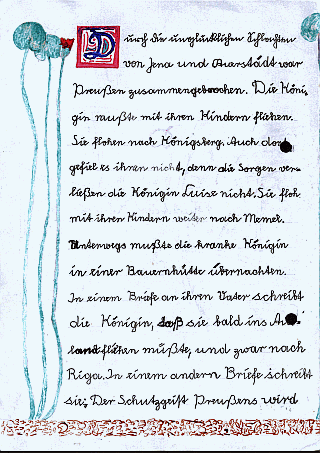 Durch die unglücklichen Schlachten
von Jena und Auerstädt war
Preußen zusammengebrochen. Die Köni,
gin mußte mit ihren Kindern fliehen.
Sie flohen nach Königsberg. Auch dort
gefiel es ihnen nicht, denn die Sorgen ver=
ließen die Königin Luise nicht. Sie floh
mit ihren Kindern weiter nach Memel.
Unterwegs mußte die kranke Königin
in einer Bauernhütte übernachten.
In einem Briefe an ihren Vater schreibt
die Königin, daß sie bald ins Aus.
land fliehen müßte, und zwar nach
Riga. In einem andern Briefe schreibt
sie; Der Schutzgeist Preußens wird